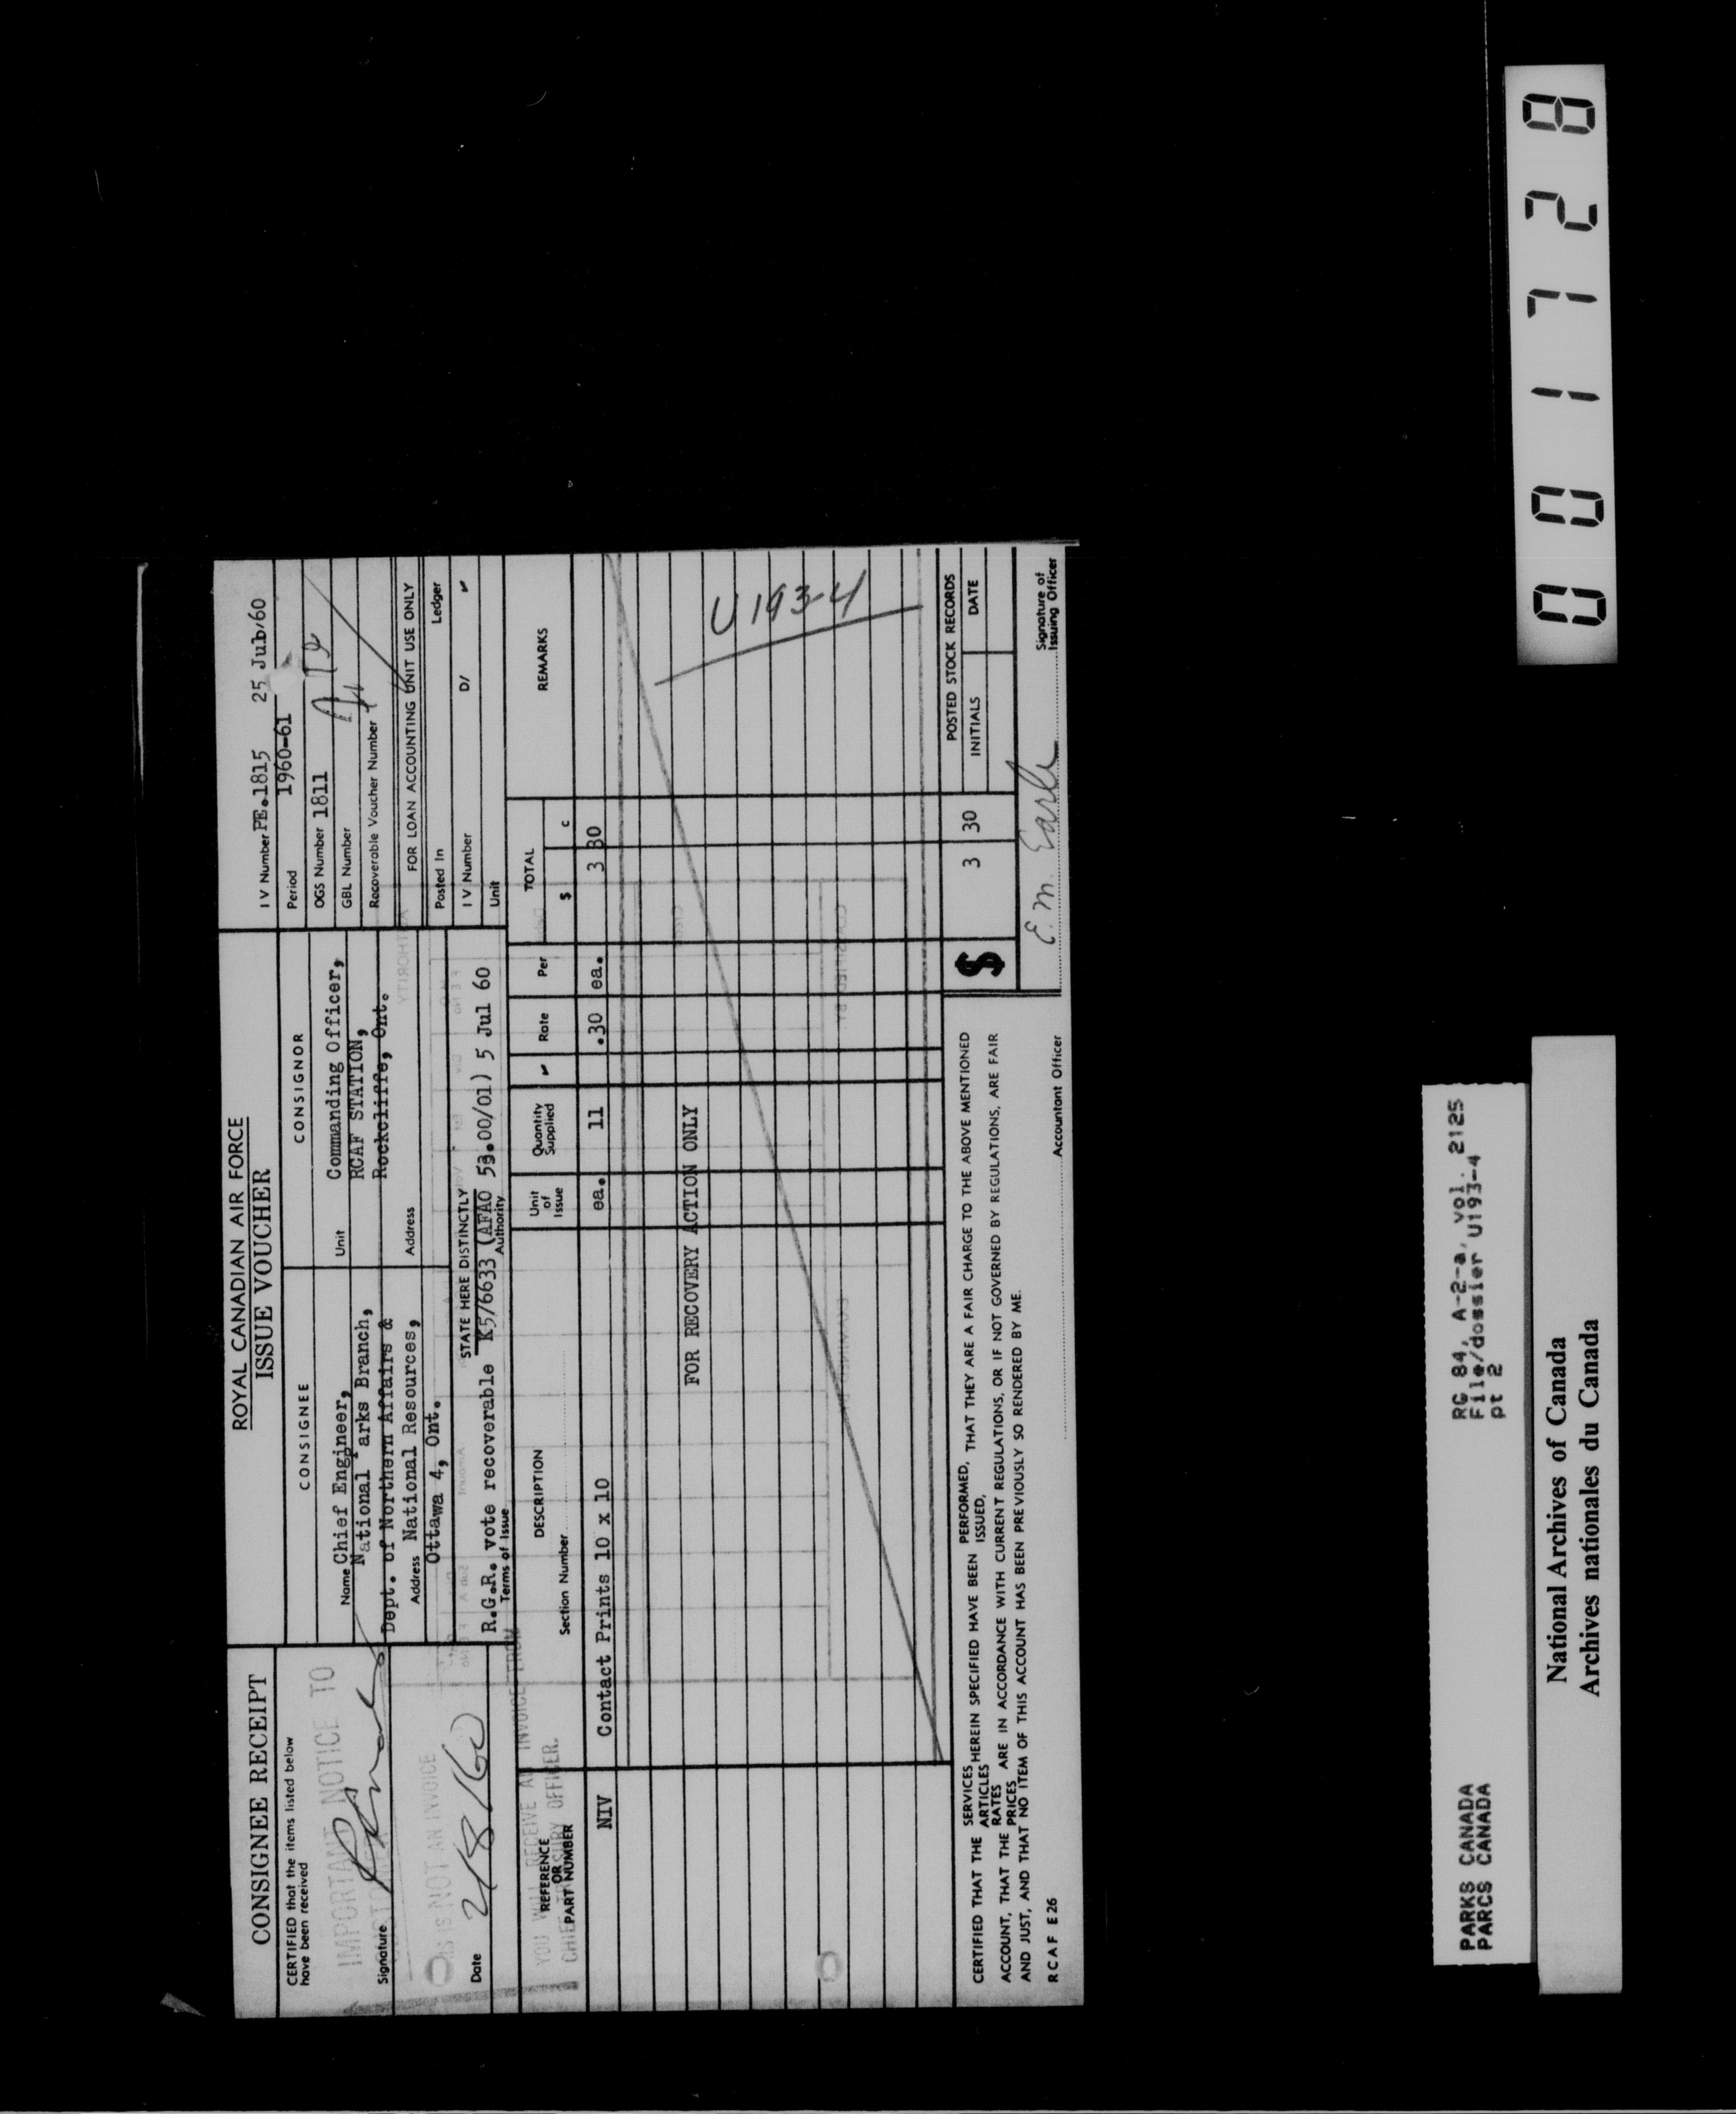 CONSIGNEE RECEIPT
CERTIFIED that the items listed below
have been received
IMPORTANT NOTICE TO
Signature
IS NOT AN INVOICE
Date 2/8/60
ROYAL CANADIAN AIR FORCE
ISSUE VOUCHER
CONSIGNEE
Name Chief Engineer,
National arks Branch,
Dept. of Northern Affairs &
Address National Resources,
Ottawa 4, Ont.
CONSIGNOR
Unit Commanding Officer,
RCAF STATION,
Rockcliffe, Ont.
Address
STATE HERE DISTINCTLY
R.G.R. vote recoverable K576633 (AFAO 53.00/01) 5 Jul 60
Terms of Issue Authority
I V Number PE.1815 25 Jul/60
Period 1960-61
OGS Number 1811
GBL Number
Recoverable Voucher Number
FOR LOAN ACCOUNTING UNIT USE ONLY
Posted In Ledger
I V Number D/ ✓
Unit
YOU WILL RECEIVE AN INVOICE FROM
CHIEF TREASURY OFFICER.
REFERENCE
OR
PART NUMBER
DESCRIPTION
Section Number
Unit
of
Issue
Quantity
Supplied
✓
Rate
Per
TOTAL
$ c
REMARKS
NIV Contact Prints 10 x 10 ea. 11 .30 ea. 3 30
FOR RECOVERY ACTION ONLY
U193-4
CERTIFIED THAT THE SERVICES ARTICLES HEREIN SPECIFIED HAVE BEEN PERFORMED, ISSUED, THAT THEY ARE A FAIR CHARGE TO THE ABOVE MENTIONED
ACCOUNT, THAT THE RATES PRICES ARE IN ACCORDANCE WITH CURRENT REGULATIONS, OR IF NOT GOVERNED BY REGULATIONS, ARE FAIR
AND JUST, AND THAT NO ITEM OF THIS ACCOUNT HAS BEEN PREVIOUSLY SO RENDERED BY ME.
RCAF E26
Accountant Officer
$ 3 30
POSTED STOCK RECORDS
INITIALS DATE
E.M. Earle
Signature of
Issuing Officer
PARKS CANADA
PARCS CANADA
RG 84, A-2-a, vol. 2125
File/dossier U193-4
pt 2
National Archives of Canada
Archives nationales du Canada
001728